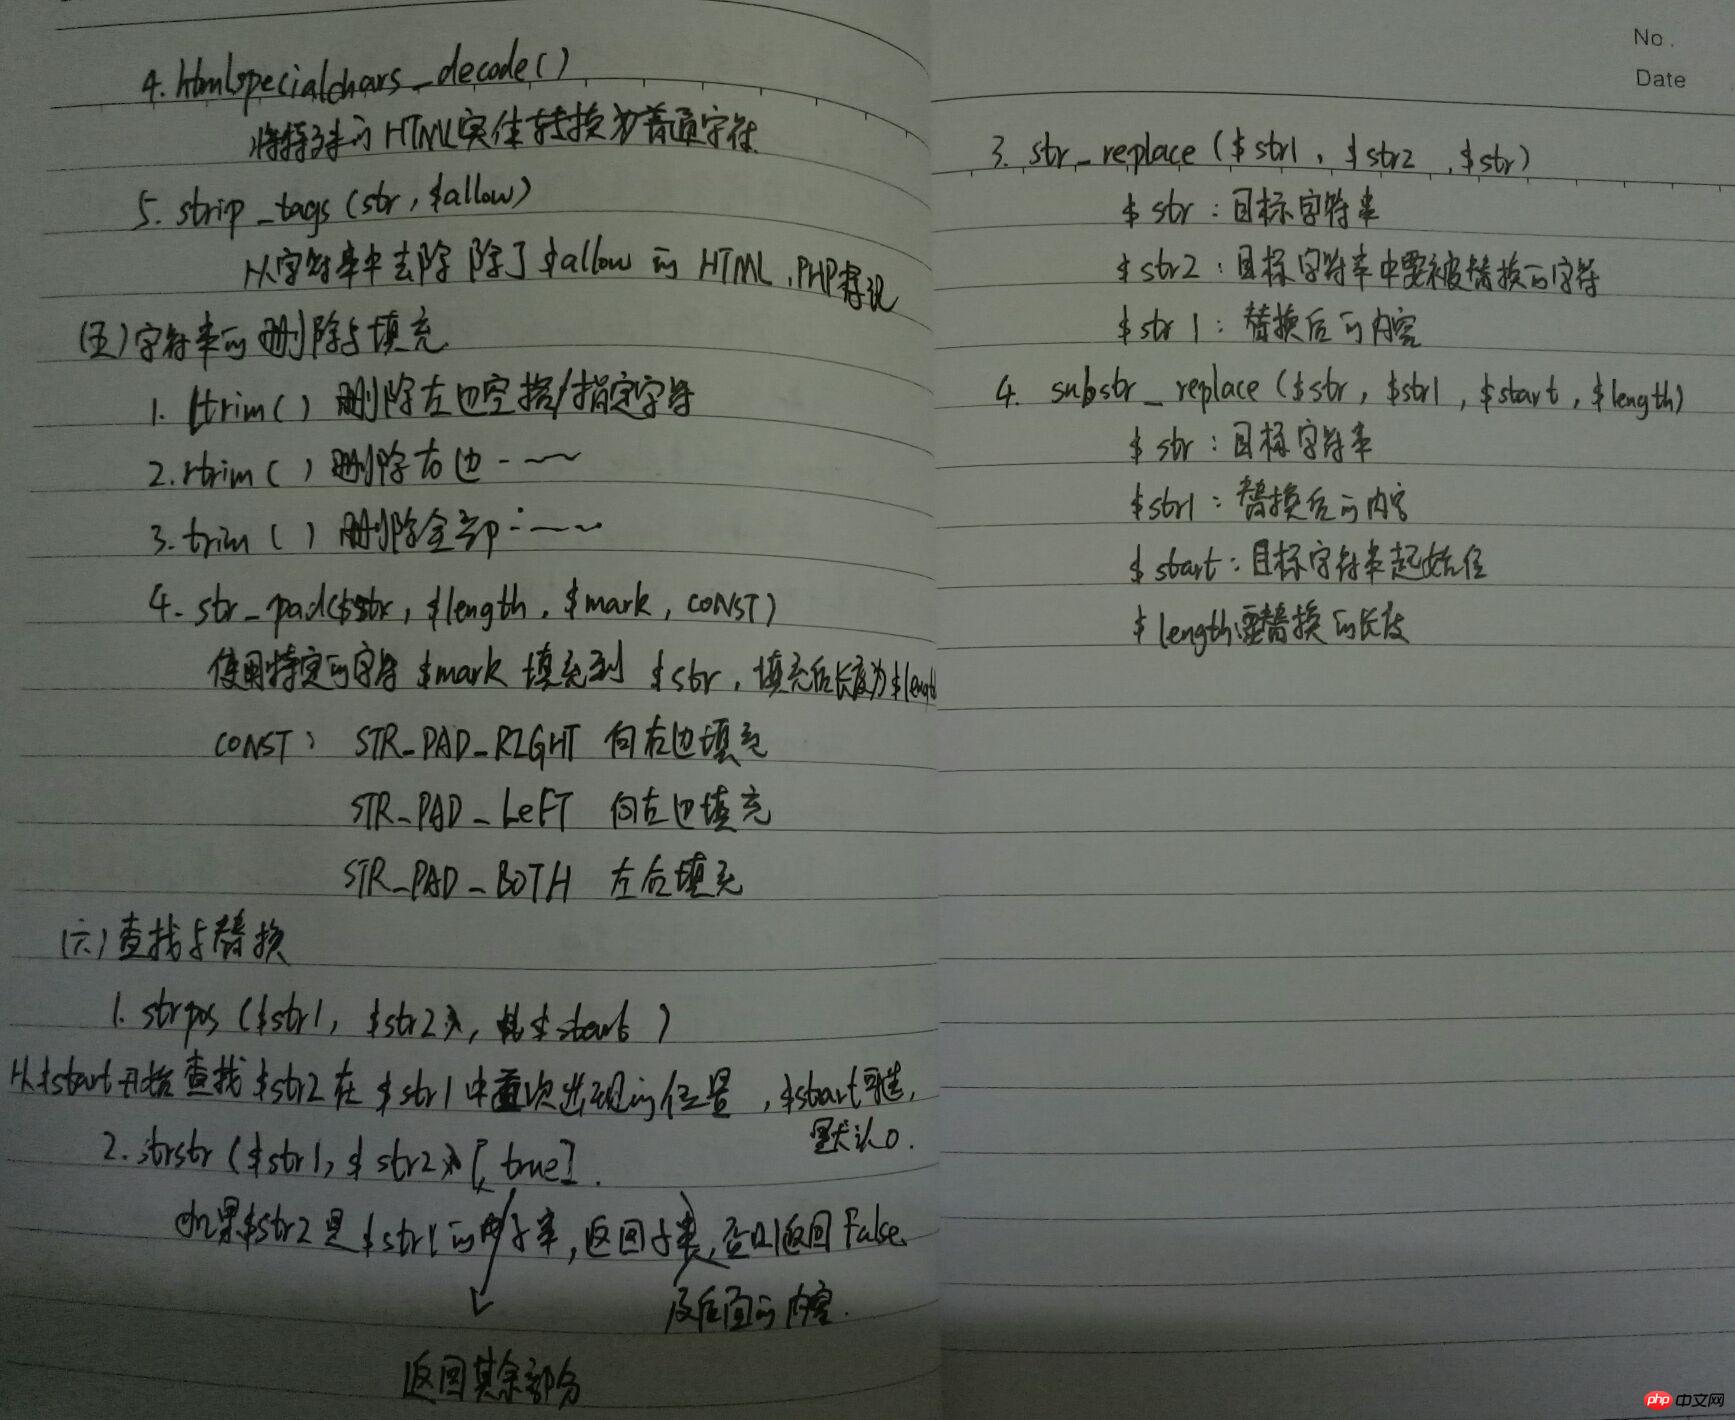 4. htmlspecialchars_decode()
将特殊的HTML实体转换为普通字符
5. strip_tags (str, $allow)
从字符串中去除 除了$allow 的 HTML、PHP标记
(五)字符串的删除与填充
1. ltrim() 删除左边空格/指定字符
2. rtrim() 删除右边
3. trim() 删除全部
4. str_pad($str, $length, $mark, CONST)
使用特定的字符 $mark 填充到 $str, 填充后长度为$length
CONST: STR_PAD_RIGHT 向右边填充
STR_PAD_LeFT 向左边填充
STR_PAD_BOTH 左右填充
(六)查找与替换
1. strpos ($str1, $str2, $start )
从$start开始查找$str2在$str1中首次出现的位置, $start可选,
默认0.
2. strstr ($str1, $str2 [, true].
如果$str2是$str1的子串,返回子串,否则返回False.
及后面的内容.
返回其余部分
No.
Date
3. str_replace ($str1, $str2, $str)
$str: 目标字符串
$str2: 目标字符串中要被替换的字符
$str1: 替换后的内容
4. substr_replace ($str, $str1, $start, $length)
$str: 目标字符串
$str1: 替换后的内容
$start: 目标字符串起始位
$length: 要替换的长度
php 中文网